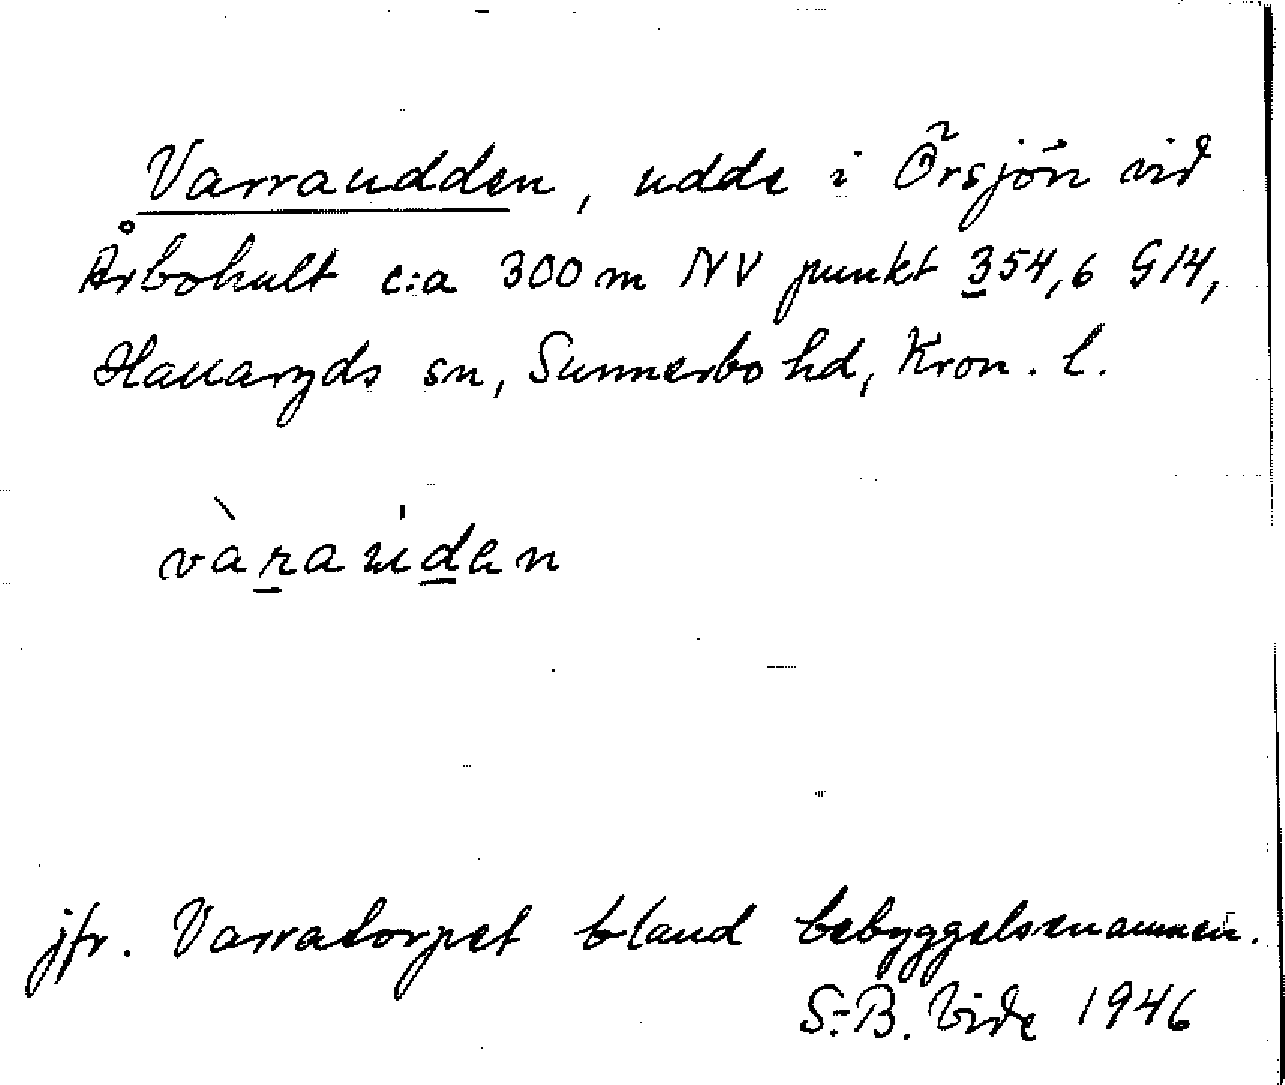 Varraudden, udde i Örsjön vid
Årbohult c:a 300 m NV punkt 354,6 G14,
Hallaryds sn, Sunnerbo hd, Kron. l.
vàraúdan
jfr. Varratorpet bland bebyggelsenamnen.
S.-B. Vide 1946